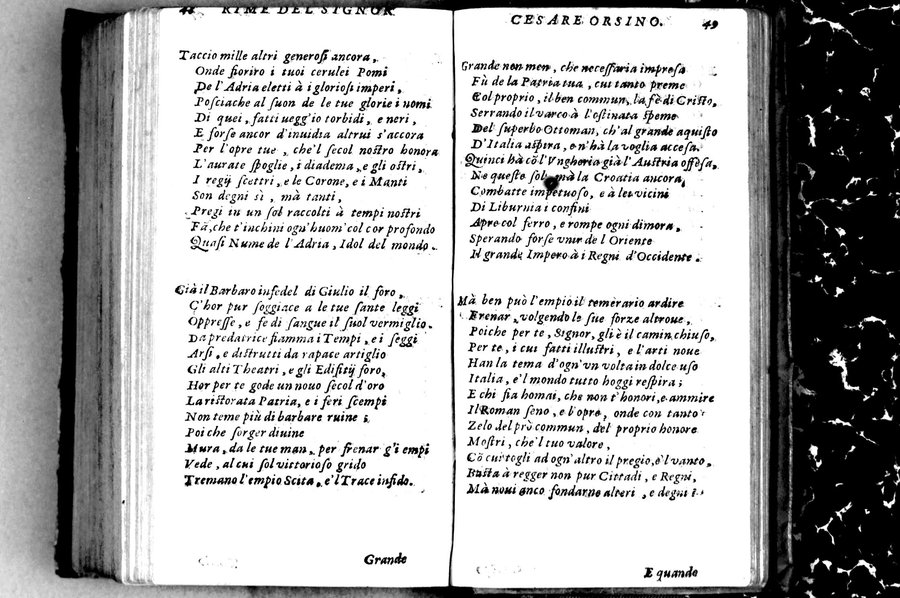 RIME DEL SIGNOR
Taccio mille altri generoſi ancora,
Onde fioriro i tuoi cerulei Pomi
De l'Adria eletti à i glorioſi imperi,
Poſciache al ſuon de le tue glorie i nomi
Di quei, fatti uegg'io torbidi, e neri,
E forſe ancor d'inuidia altrui s'accora
Per l'opre tue, che'l ſecol noſtro honora
L'aurate ſpoglie, i diadema, e gli oſtri,
I regij ſcettri, e le Corone, e i Manti
Son degni sì, mà tanti,
Pregi in un ſol raccolti à tempi noſtri
Fà, che t'inchini ogn'huom' col cor profondo
Quaſi Nume de l'Adria, Idol del mondo.
Già il Barbaro infedel di Giulio il foro,
C'hor pur ſoggiace a le tue ſante leggi
Oppreſſe, e fe di ſangue il ſuol vermiglio.
Da predatrice fiamma i Tempi, e i ſeggi
Arſi, e diſtrutti da rapace artiglio
Gli alti Theatri, e gli Edifitij foro,
Hor per te gode un nouo ſecol d'oro
La riſtorata Patria, e i feri ſcempi
Non teme più di barbare ruine;
Poi che ſorger diuine
Mura, da le tue man, per frenar g'i empi
Vede, al cui ſol vittorioſo grido
Tremano l'empio Scita, e'l Trace infido.
Grande
CESARE ORSINO. 49
Grande non men, che neceſſaria impreſa
Fù de la Patria tua, cui tanto preme
Col proprio, il ben commun, la fè di Criſto,
Serrando il varco à l'oſtinata ſpeme
Del ſuperbo Ottoman, ch'al grande aquiſto
D'Italia aſpira, e n'hà la voglia acceſa.
Quinci hà cō l'Vngheria già l'Auſtria offeſa,
Ne queſte ſol, mà la Croatia ancora,
Combatte impetuoſo, e à le vicini
Di Liburnia i confini
Apre col ferro, e rompe ogni dimora,
Sperando forſe vnir de l'Oriente
Il grande Impero à i Regni d'Occidente.
Mà ben può l'empio il temerario ardire
Frenar, volgendo le ſue forze altroue,
Poiche per te, Signor, gli è il camin chiuſo,
Per te, i cui fatti illuſtri, e l'arti noue
Han la tema d'ogn'vn volta in dolce uſo
Italia, e'l mondo tutto hoggi reſpira;
E chi fia homai, che non t'honori, e ammire
Il Roman ſeno, e l'opre, onde con tanto
Zelo del prò commun, del proprio honore
Moſtri, che'l tuo valore,
Cō cui togli ad ogn'altro il pregio, e'l vanto,
Baſta à regger non pur Cittadi, e Regni,
Mà noui anco fondarne alteri, e degni
E quando